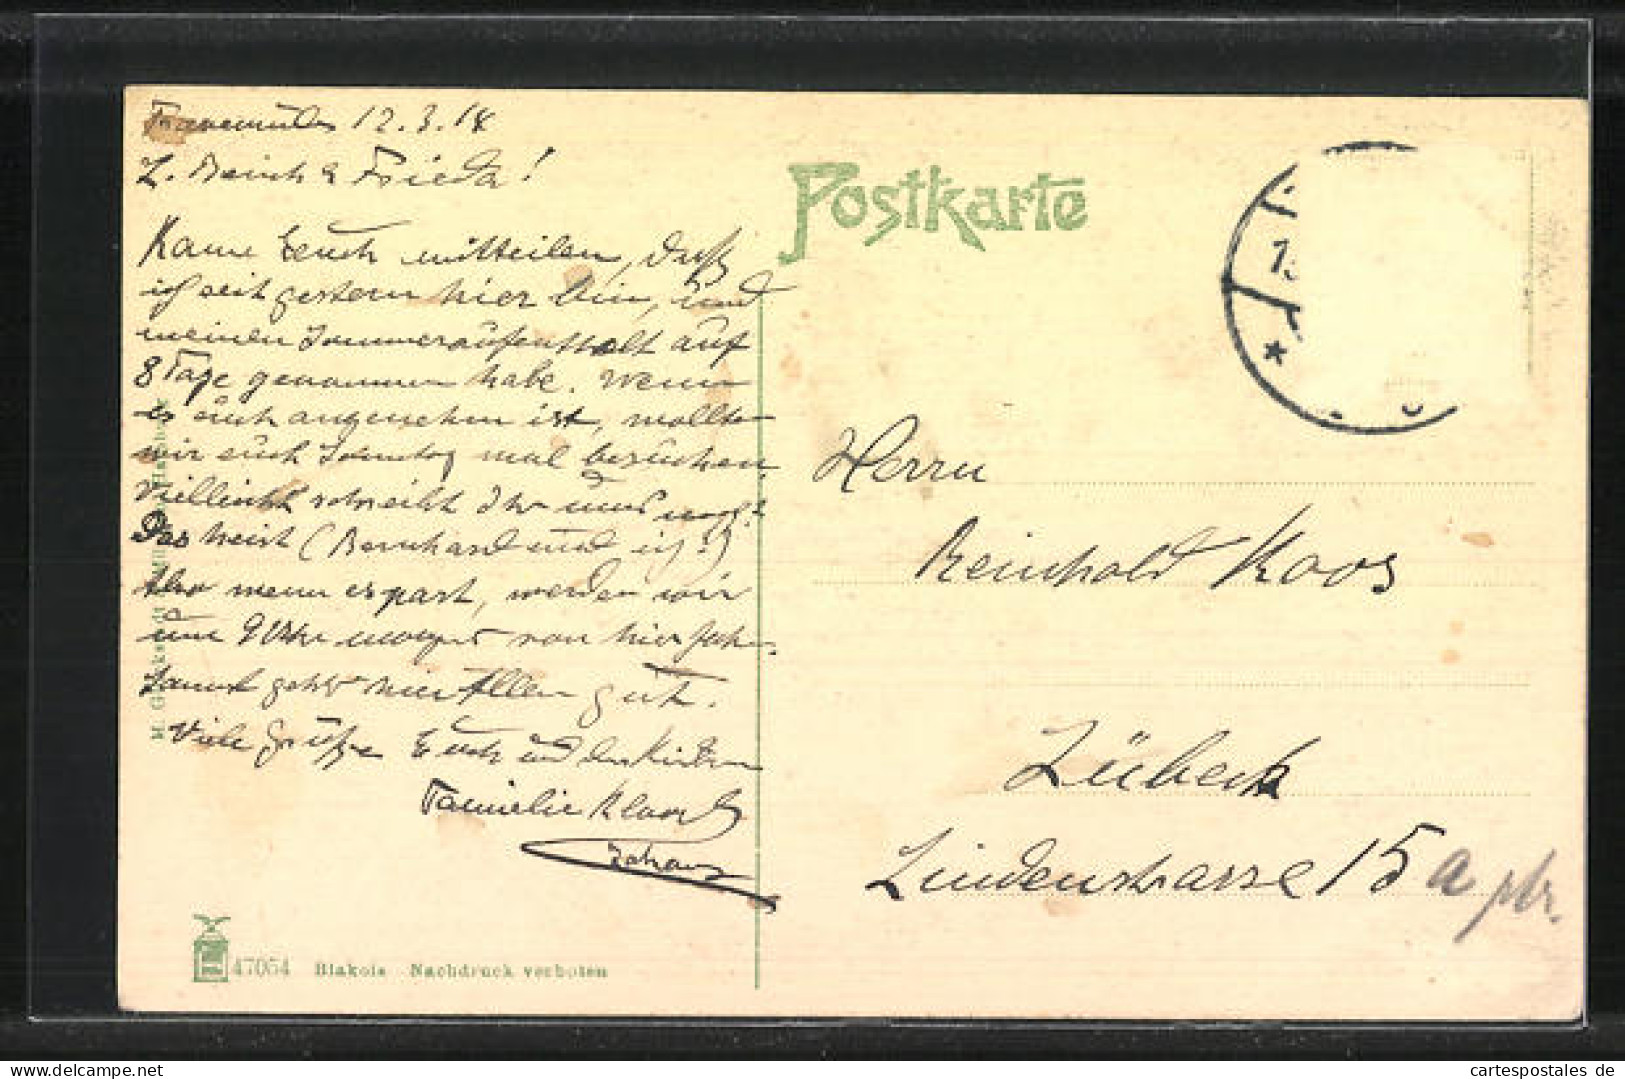 Travemünde 12.3.18
L. Reinh & Frieda!
Kann Euch mitteilen, daß
ich seit gestern hier bin, und
meinen Sommeraufenthalt auf
8 Tage genommen habe. Wenn
es euch angenehm ist, wollte
wir euch Sonntag mal besuchen.
Vielleicht schreibt Ihr uns noch?
Das heist (Bernhard und ich!)
Also wenn es past, werden wir
um 9 Uhr morgens von hier fah-
Sonst geht hier Allen gut.
Viele Grüße Euch und den Kindern
Familie
Postkarte
Herrn
Reinhold Koos
Lübeck
Lindenstrasse 15 a ptr.
47054 Blakois Nachdruck verboten